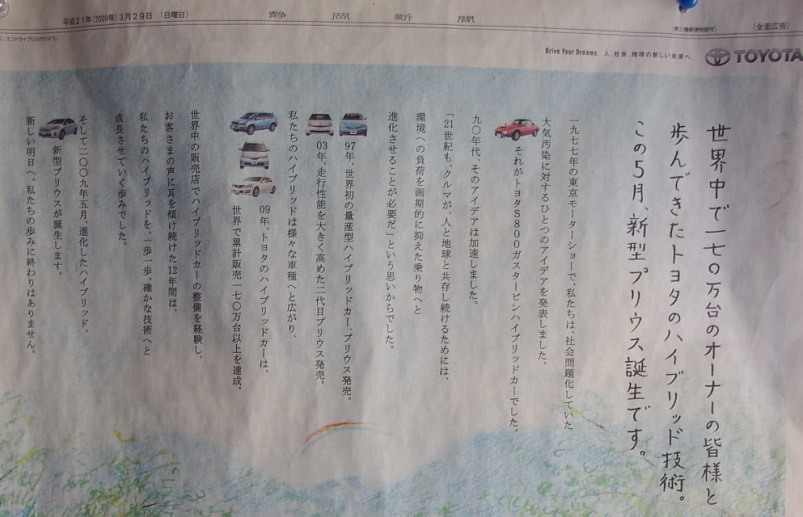 平成21年(2009年)3月29日 (日曜日)
静岡新聞
(第三種郵便物認可)
(全面広告)
Drive Your Dreams. 人、社会、地球の新しい未来へ。
TOYOTA
世界中で一七〇万台のオーナーの皆様と
歩んできたトヨタのハイブリッド技術。
この5月、新型プリウス誕生です。
一九七七年の東京モーターショーで、私たちは、社会問題化していた
大気汚染に対するひとつのアイデアを発表しました。
それがトヨタS800ガスタービンハイブリッドカーでした。
九〇年代、そのアイデアは加速しました。
「21世紀も、クルマが、人と地球と共存し続けるためには、
環境への負荷を画期的に抑えた乗り物へと
進化させることが必要だ」という思いからでした。
97年、世界初の量産型ハイブリッドカー、プリウス発売。
03年、走行性能を大きく高めた二代目プリウス発売。
私たちのハイブリッドは様々な車種へと広がり、
09年、トヨタのハイブリッドカーは、
世界で累計販売一七〇万台以上を達成。
世界中の販売店でハイブリッドカーの整備を経験し、
お客さまの声に耳を傾け続けた12年間は、
私たちのハイブリッドを、一歩一歩、確かな技術へと
成長させていく歩みでした。
そして二〇〇九年五月、進化したハイブリッド、
新型プリウスが誕生します。
新しい明日へ、私たちの歩みに終わりはありません。